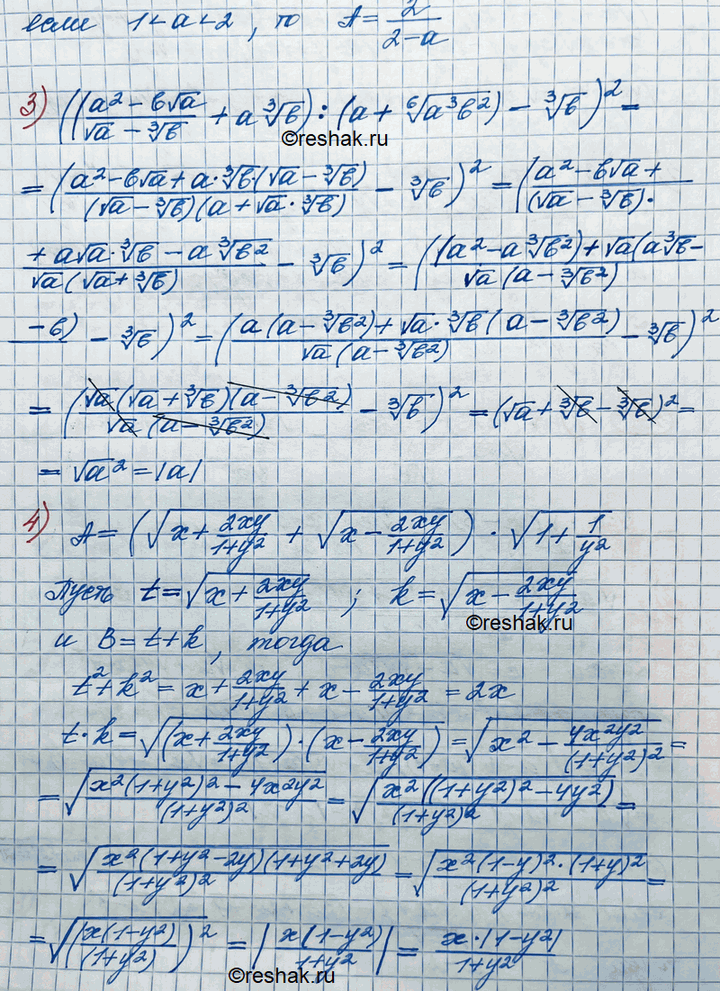 если 1<a<2, то A = 2/(2-a)
3) (((a² - b√a)/(√a - ∛b) + a∛b) : (a + ⁶√(a³b²)) - ∛b)² =
©reshak.ru
= ((a² - b√a + a·∛b(√a - ∛b))/((√a - ∛b)(a + √a·∛b)) - ∛b)² = ((a² - b√a +)/((√a - ∛b)·
(+ a√a·∛b - a∛b²)/(√a(√a + ∛b)) - ∛b)² = (((a² - a∛b²) + √a(a∛b -)/(√a(a - ∛b²))
- b) - ∛b)² = ((a(a - ∛b²) + √a·∛b(a - ∛b²))/(√a(a - ∛b²)) - ∛b)²
= ((√a(√a + ∛b)(a - ∛b²))/(√a(a - ∛b²)) - ∛b)² = (√a + ∛b - ∛b)² =
= √a² = |a|
4) A = (√(x + 2xy/(1+y²)) + √(x - 2xy/(1+y²))) · √(1 + 1/y²)
Пусть t = √(x + 2xy/(1+y²)) ; k = √(x - 2xy/(1+y²))
©reshak.ru
и B = t + k, тогда
t² + k² = x + 2xy/(1+y²) + x - 2xy/(1+y²) = 2x
t·k = √((x + 2xy/(1+y²))·(x - 2xy/(1+y²))) = √(x² - 4x²y²/(1+y²)²) =
= √((x²(1+y²)² - 4x²y²)/(1+y²)²) = √((x²((1+y²)² - 4y²))/(1+y²)²) =
= √((x²(1+y²-2y)(1+y²+2y))/(1+y²)²) = √((x²(1-y)²·(1+y)²)/(1+y²)²) =
= √((x(1-y²)/(1+y²))²) = |x(1-y²)/(1+y²)| = x·|1-y²|/(1+y²)
©reshak.ru